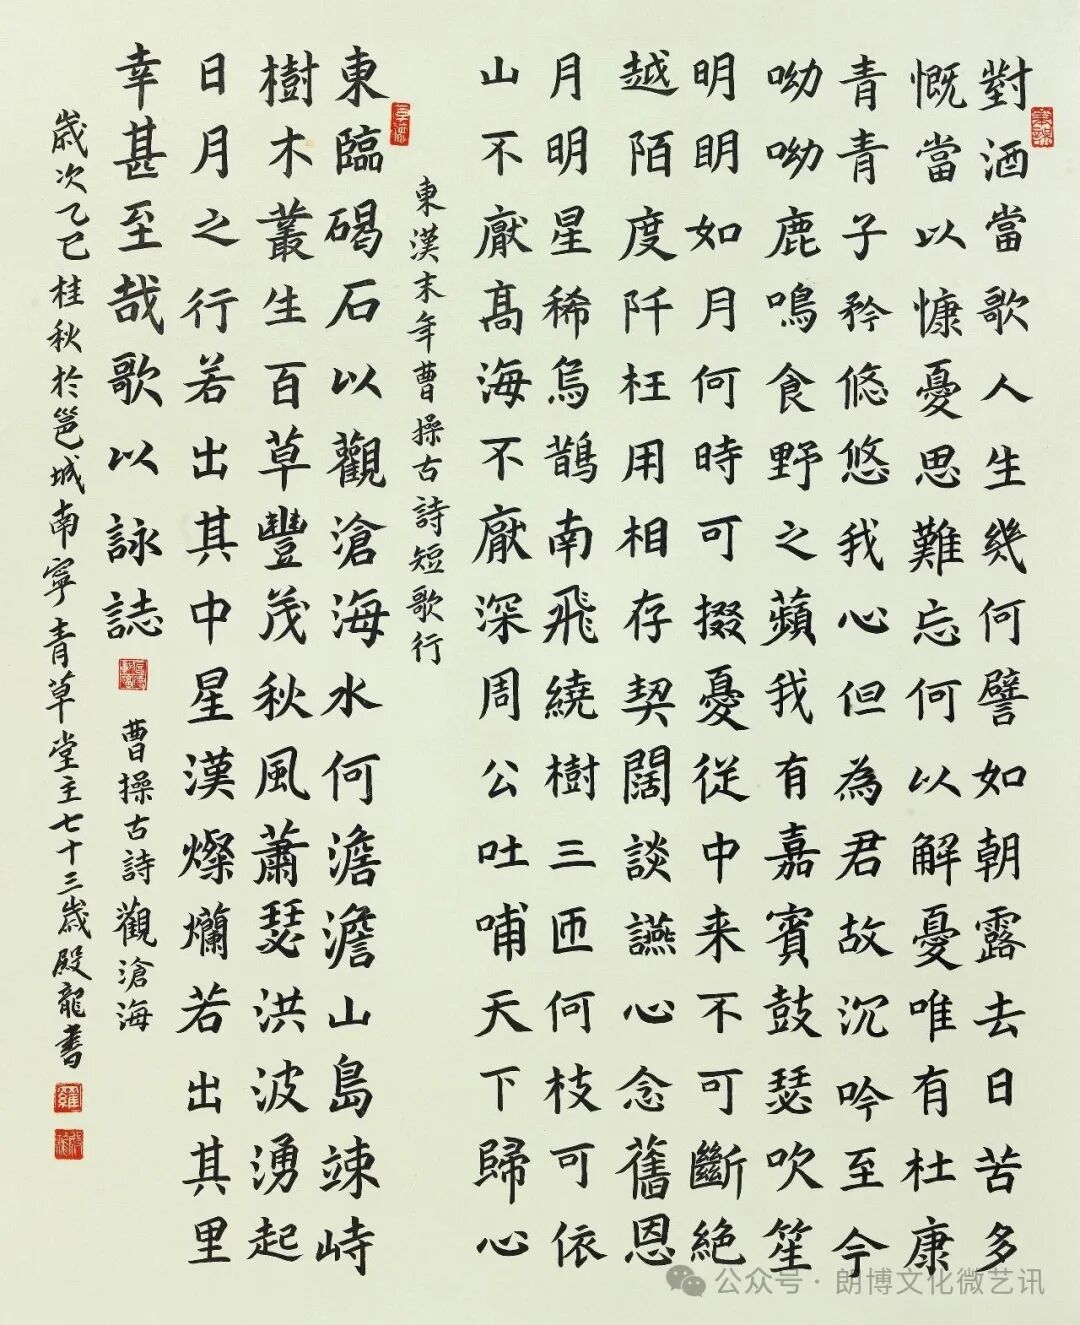 對酒當歌人生幾何譬如朝露去日苦多
慨當以慷憂思難忘何以解憂唯有杜康
青青子衿悠悠我心但為君故沉吟至今
呦呦鹿鳴食野之蘋我有嘉賓鼓瑟吹笙
明明如月何時可掇憂從中来不可斷絶
越陌度阡枉用相存契闊談讌心念舊恩
月明星稀烏鵲南飛繞樹三匝何枝可依
山不厭髙海不厭深周公吐哺天下歸心
東漢末年曹操古詩短歌行
東臨碣石以觀滄海水何澹澹山島竦峙
樹木叢生百草豐茂秋風蕭瑟洪波湧起
日月之行若出其中星漢燦爛若出其里
幸甚至哉歌以詠誌
曹操古詩觀滄海
歲次乙巳桂秋於邕城南寧青草堂主七十三歲殿龍書
公众号·朗博文化微艺讯